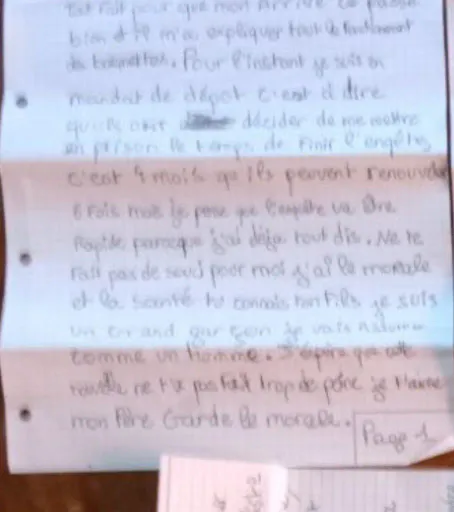 Est fait pour que mon arrivé ce passe
bien et il m'a expliquer tout le
Pour l'instant je suis en
mandat de dépot c'est à dire
qu'ils ont décider de me mettre
en prison le temps de finir l'enquête
c'est 4 mois qu'ils peuvent renouveler
6 fois mais je pense que l'enquête va être
rapide parceque j'ai déja tout dis. Ne te
fait pas de souci pour moi j'ai le morale
et la santé tu connais ton fils je suis
un grand garçon je vais
comme un homme. J'éspère que cette
nouvelle ne t'a pas fait trop de peine je t'aime
mon Père Garde le morale.
Page 1